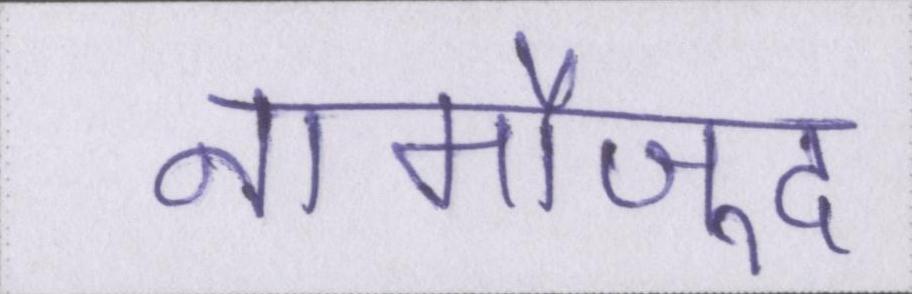 नामौजूद